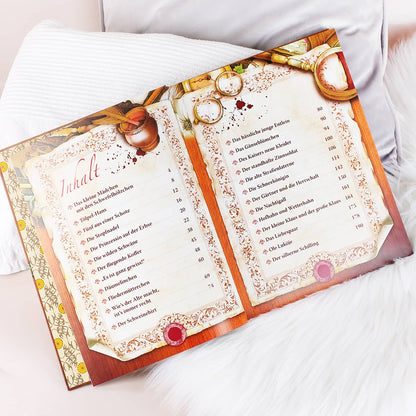 Inhalt
Das kleine Mädchen
mit den Schwefelhölzchen
Tölpel-Hans
Fünf aus einer Schote
Die Stopfnadel
Die Prinzessin auf der Erbse
Die wilden Schwäne
Der fliegende Koffer
„Es ist ganz gewiss!“
Däumelinchen
Fliedermütterchen
Wie's der Alte macht,
ist's immer recht
Der Schweinehirt
4
12
16
22
38
60
69
74
Das hässliche junge Entlein 80
Das Gänseblümchen 94
Des Kaisers neue Kleider
Der standhafte Zinnsoldat
Die alte Straßenlaterne
Die Schneekönigin
Der Gärtner und die Herrschaft
Die Nachtigall
Hofhahn und Wetterhahn
Der kleine Klaus und der große Klaus
Das Liebespaar
Ole Luköie
Der silberne Schilling